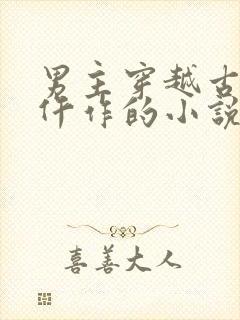 男主穿越古
仵作的小说
喜善大人